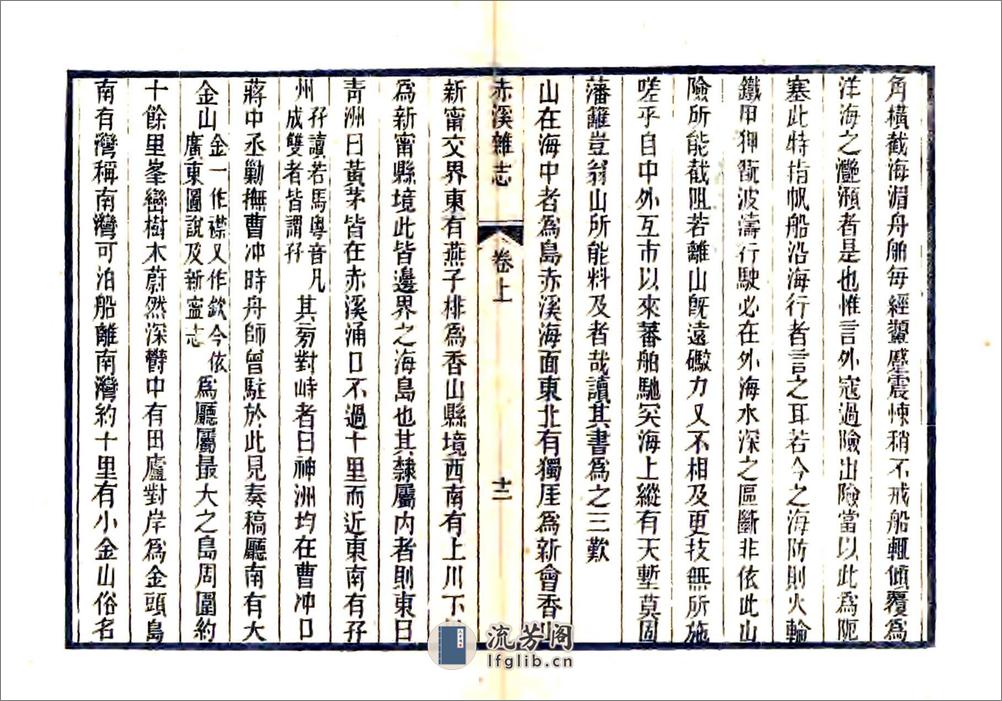 角橫截海湄舟舶每經顰蹙震悚稍不戒船輒傾覆爲
洋海之灔澦者是也惟言外寇過險出險當以此爲阨
塞此特指帆船沿海行者言之耳若今之海防則火輪
鐵甲狎翫波濤行駛必在外海水深之區斷非依此山
險所能截阻若離山旣遠礮力又不相及更技無所施
嗟乎自中外互市以來蕃舶馳突海上縱有天塹莫固
藩籬豈翁山所能料及者哉讀其書爲之三歎
山在海中者爲島赤溪海面東北有獨厓爲新會香
赤溪雜志
卷上
十二
新甯交界東有燕子排爲香山縣境西南有上川下
爲新甯縣境此皆邊界之海島也其隸屬內者則東曰
靑洲曰黃茅皆在赤溪涌口不過十里而近東南有孖
州孖讀若馬粵音凡成雙者皆謂孖其旁對峙者曰神洲均在曹冲口
蔣中丞勦撫曹冲時舟師曾駐於此見奏稿廳南有大
金山金一作襟又作欽今依廣東圖說及新寧志爲廳屬最大之島周圍約
十餘里峯巒樹木蔚然深欎中有田廬對岸爲金頭島
南有灣稱南灣可泊船離南灣約十里有小金山俗名
流芳阁
lfglib.cn